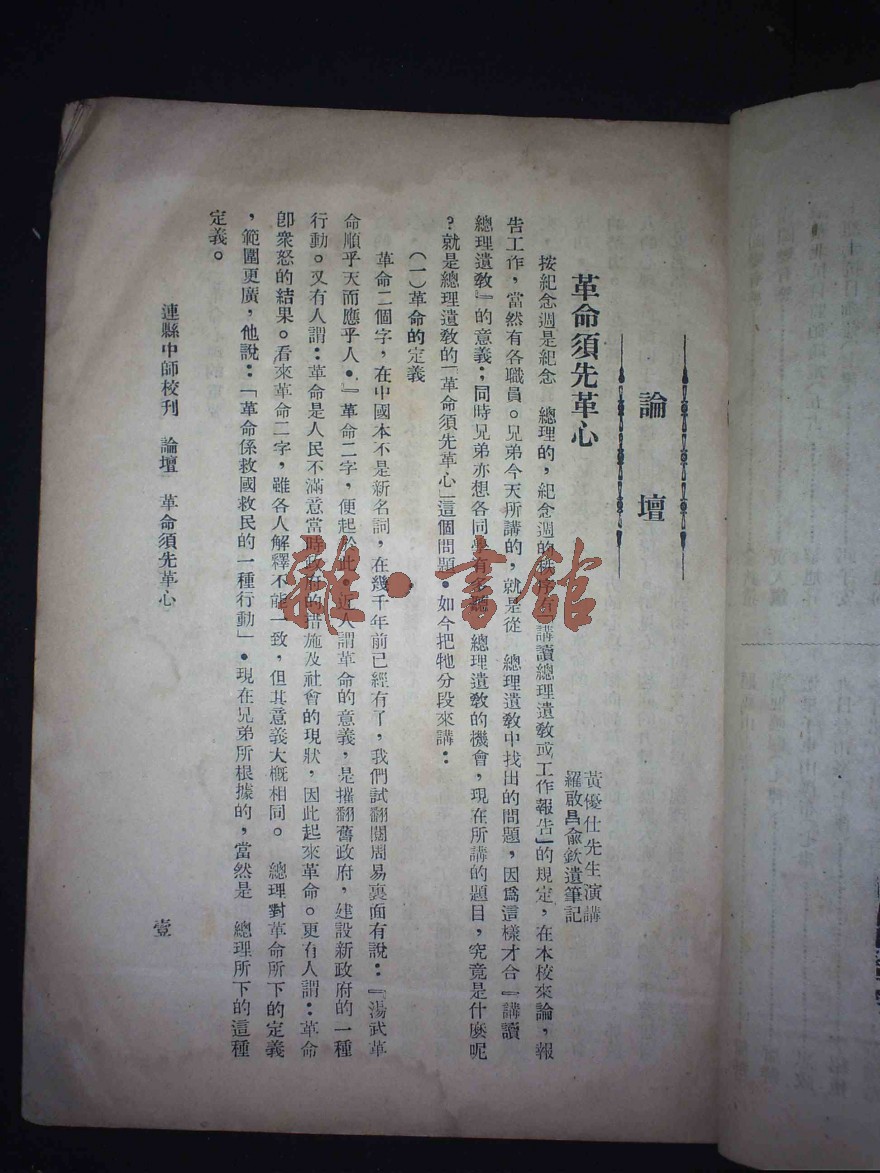 論壇
革命須先革心
黃優仕先生演講
羅敢昌俞欽遺筆記
按紀念週是紀念　總理的，紀念週的秩序有「講讀總理遺敎或工作報告」的規定，在本校來論，報
告工作，當然有各職員。兄弟今天所講的，就是從　總理遺敎中找出的問題，因爲這樣才合『講讀
總理遺敎』的意義；同時兄弟亦想各同學有多聽　總理遺敎的機會，現在所講的題目，究竟是什麽呢
？就是總理遺敎的「革命須先革心」這個問題。如今把牠分段來講：
（一）革命的定義
革命二個字，在中國本不是新名詞，在幾千年前已經有了，我們試翻閱周易裏面有說：『湯武革
命順乎天而應乎人。』革命二字，便起於此。近人謂革命的意義，是摧翻舊政府，建設新政府的一種
行動。又有人謂：革命是人民不滿意當時政府的措施及社會的現狀，因此起來革命。更有人謂：革命
卽衆怒的結果。看來革命二字，雖各人解釋不能一致，但其意義大概相同。　總理對革命所下的定義
，範圍更廣，他說：「革命係救國救民的一種行動」。現在兄弟所根據的，當然是　總理所下的這種
定義。
連縣中師校刊　論壇　革命須先革心
壹
雜·書館